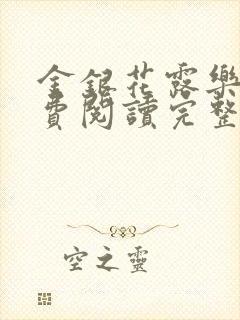 金銀花露樂
費閱讀完整
空之靈